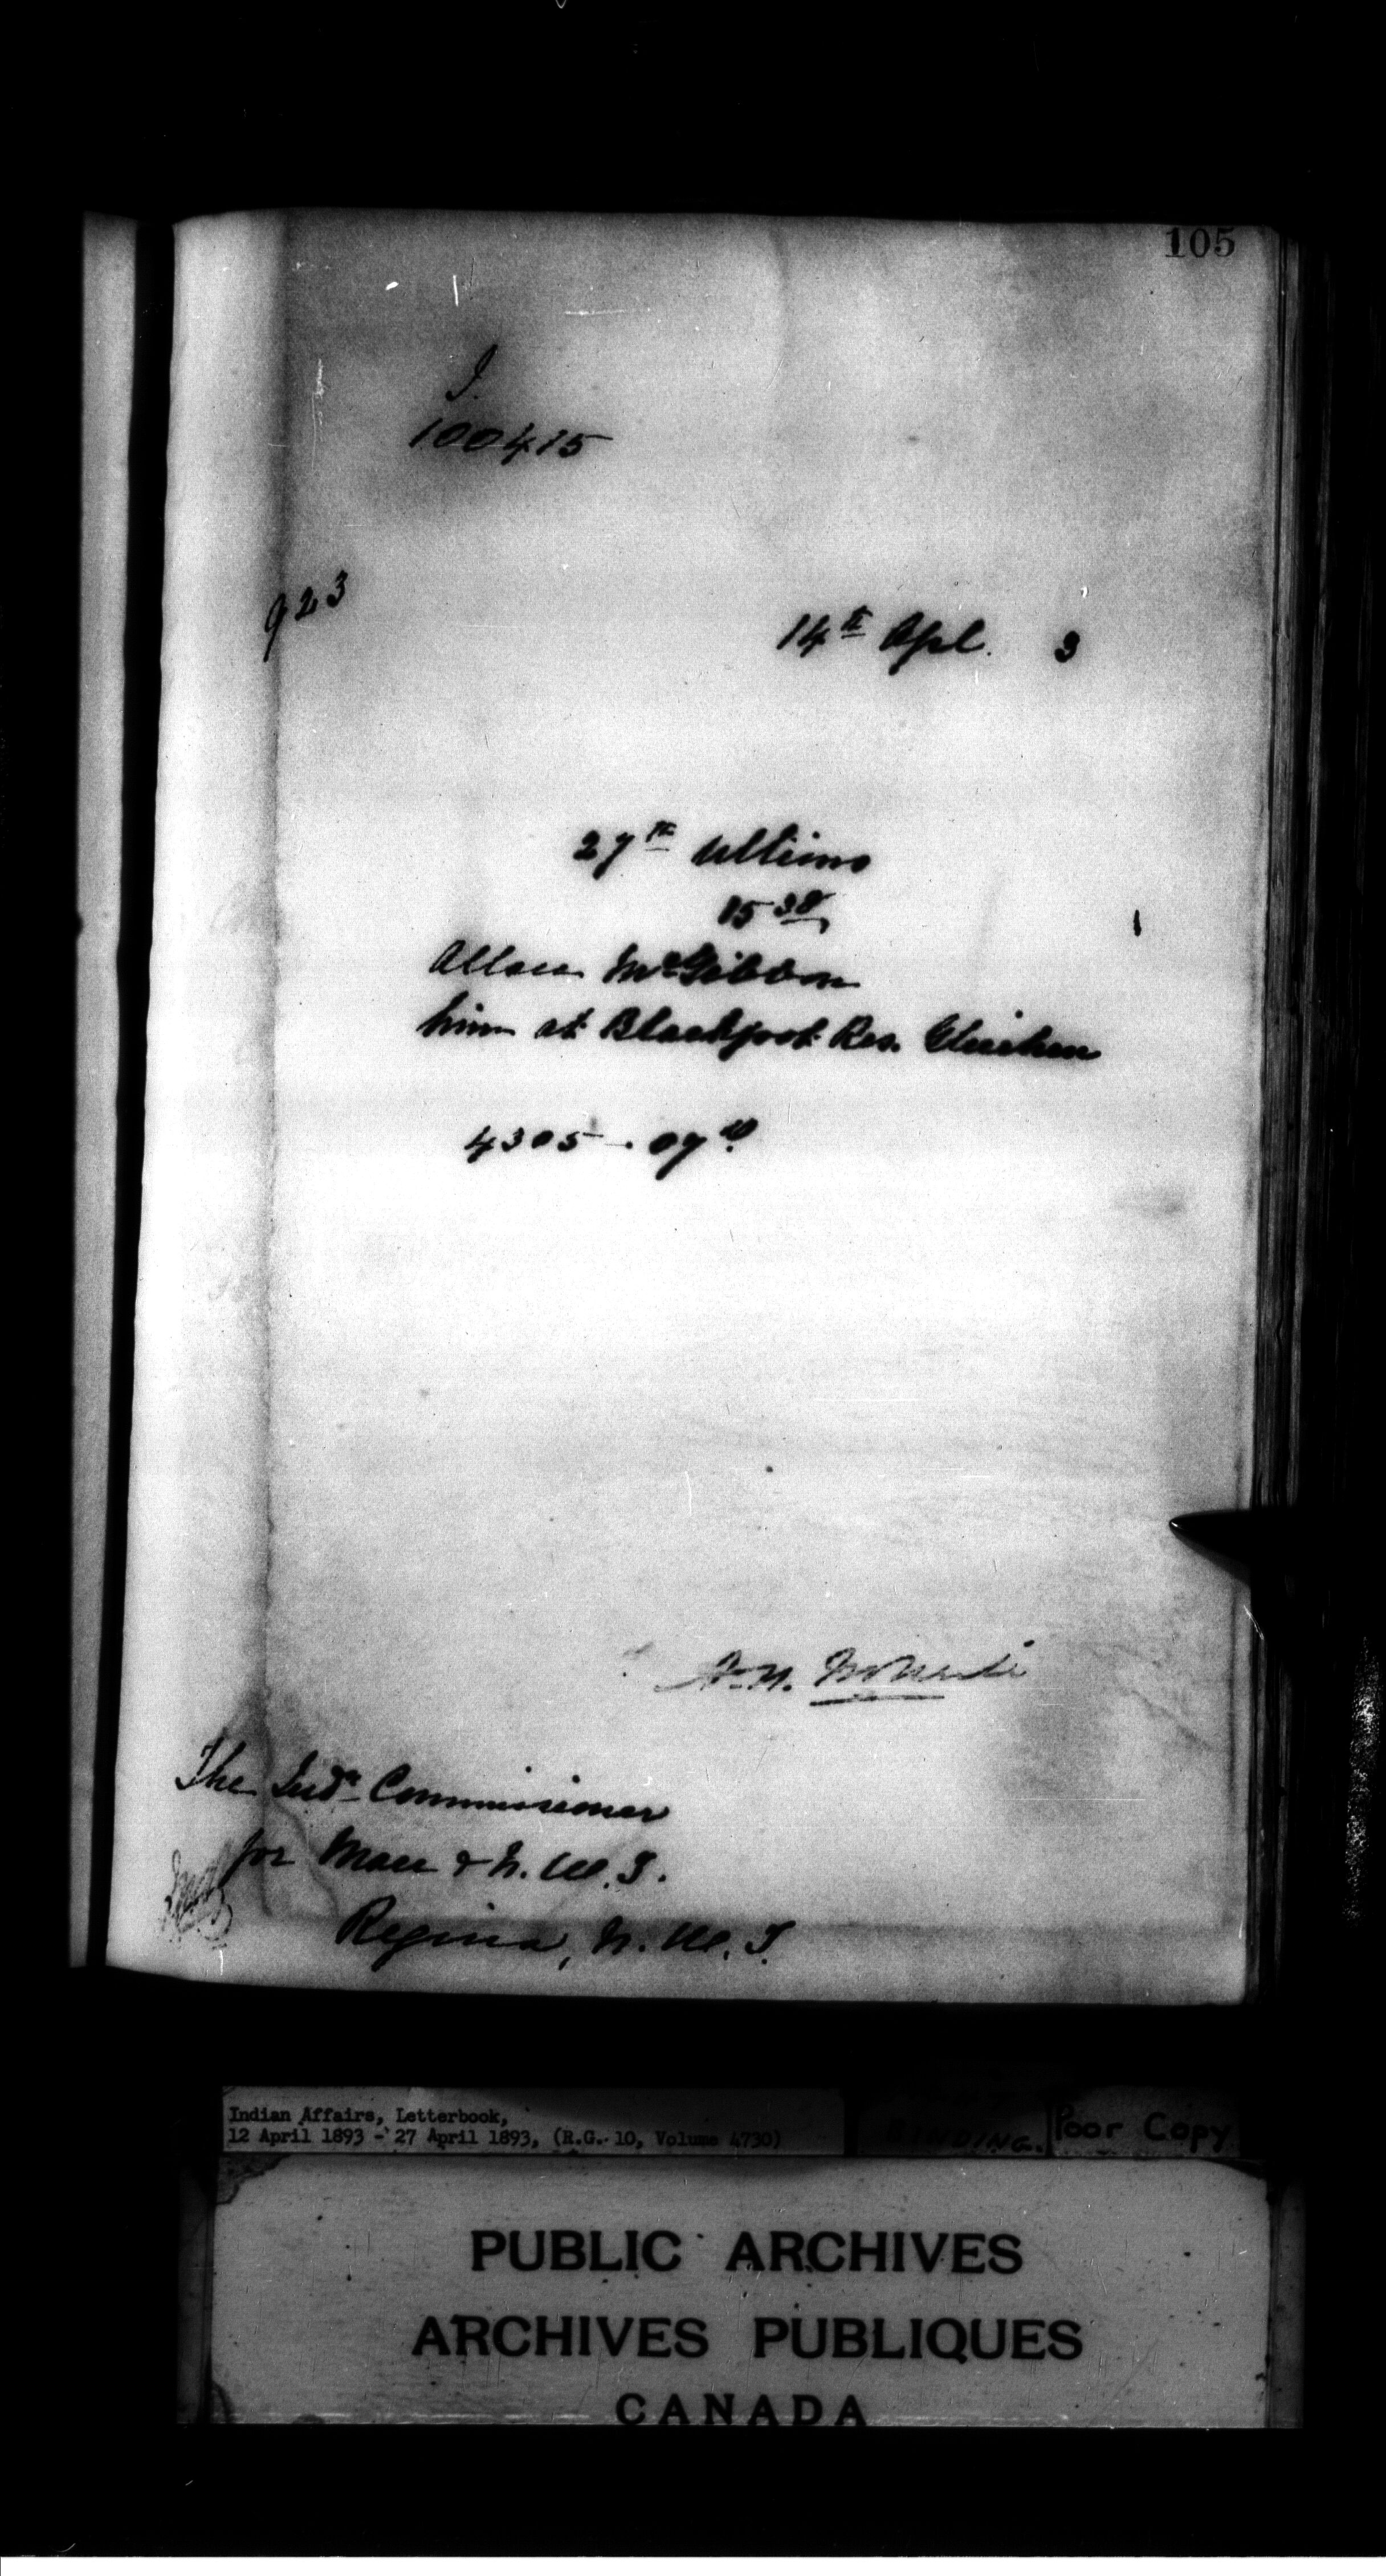 105
I.
100415
923
14th Apl. 3
27th Ultimo
15 38
Allan McGibbon
him at Blackfoot Res. Gleichen
4305 - 07 10
The Indn Commissioner
for Man & N.W.T.
Regina, N.W.T.
Indian Affairs, Letterbook,
12 April 1893 - 27 April 1893, (R.G. 10, Volume 4730)
BINDING.
Poor Copy
PUBLIC ARCHIVES
ARCHIVES PUBLIQUES
CANADA